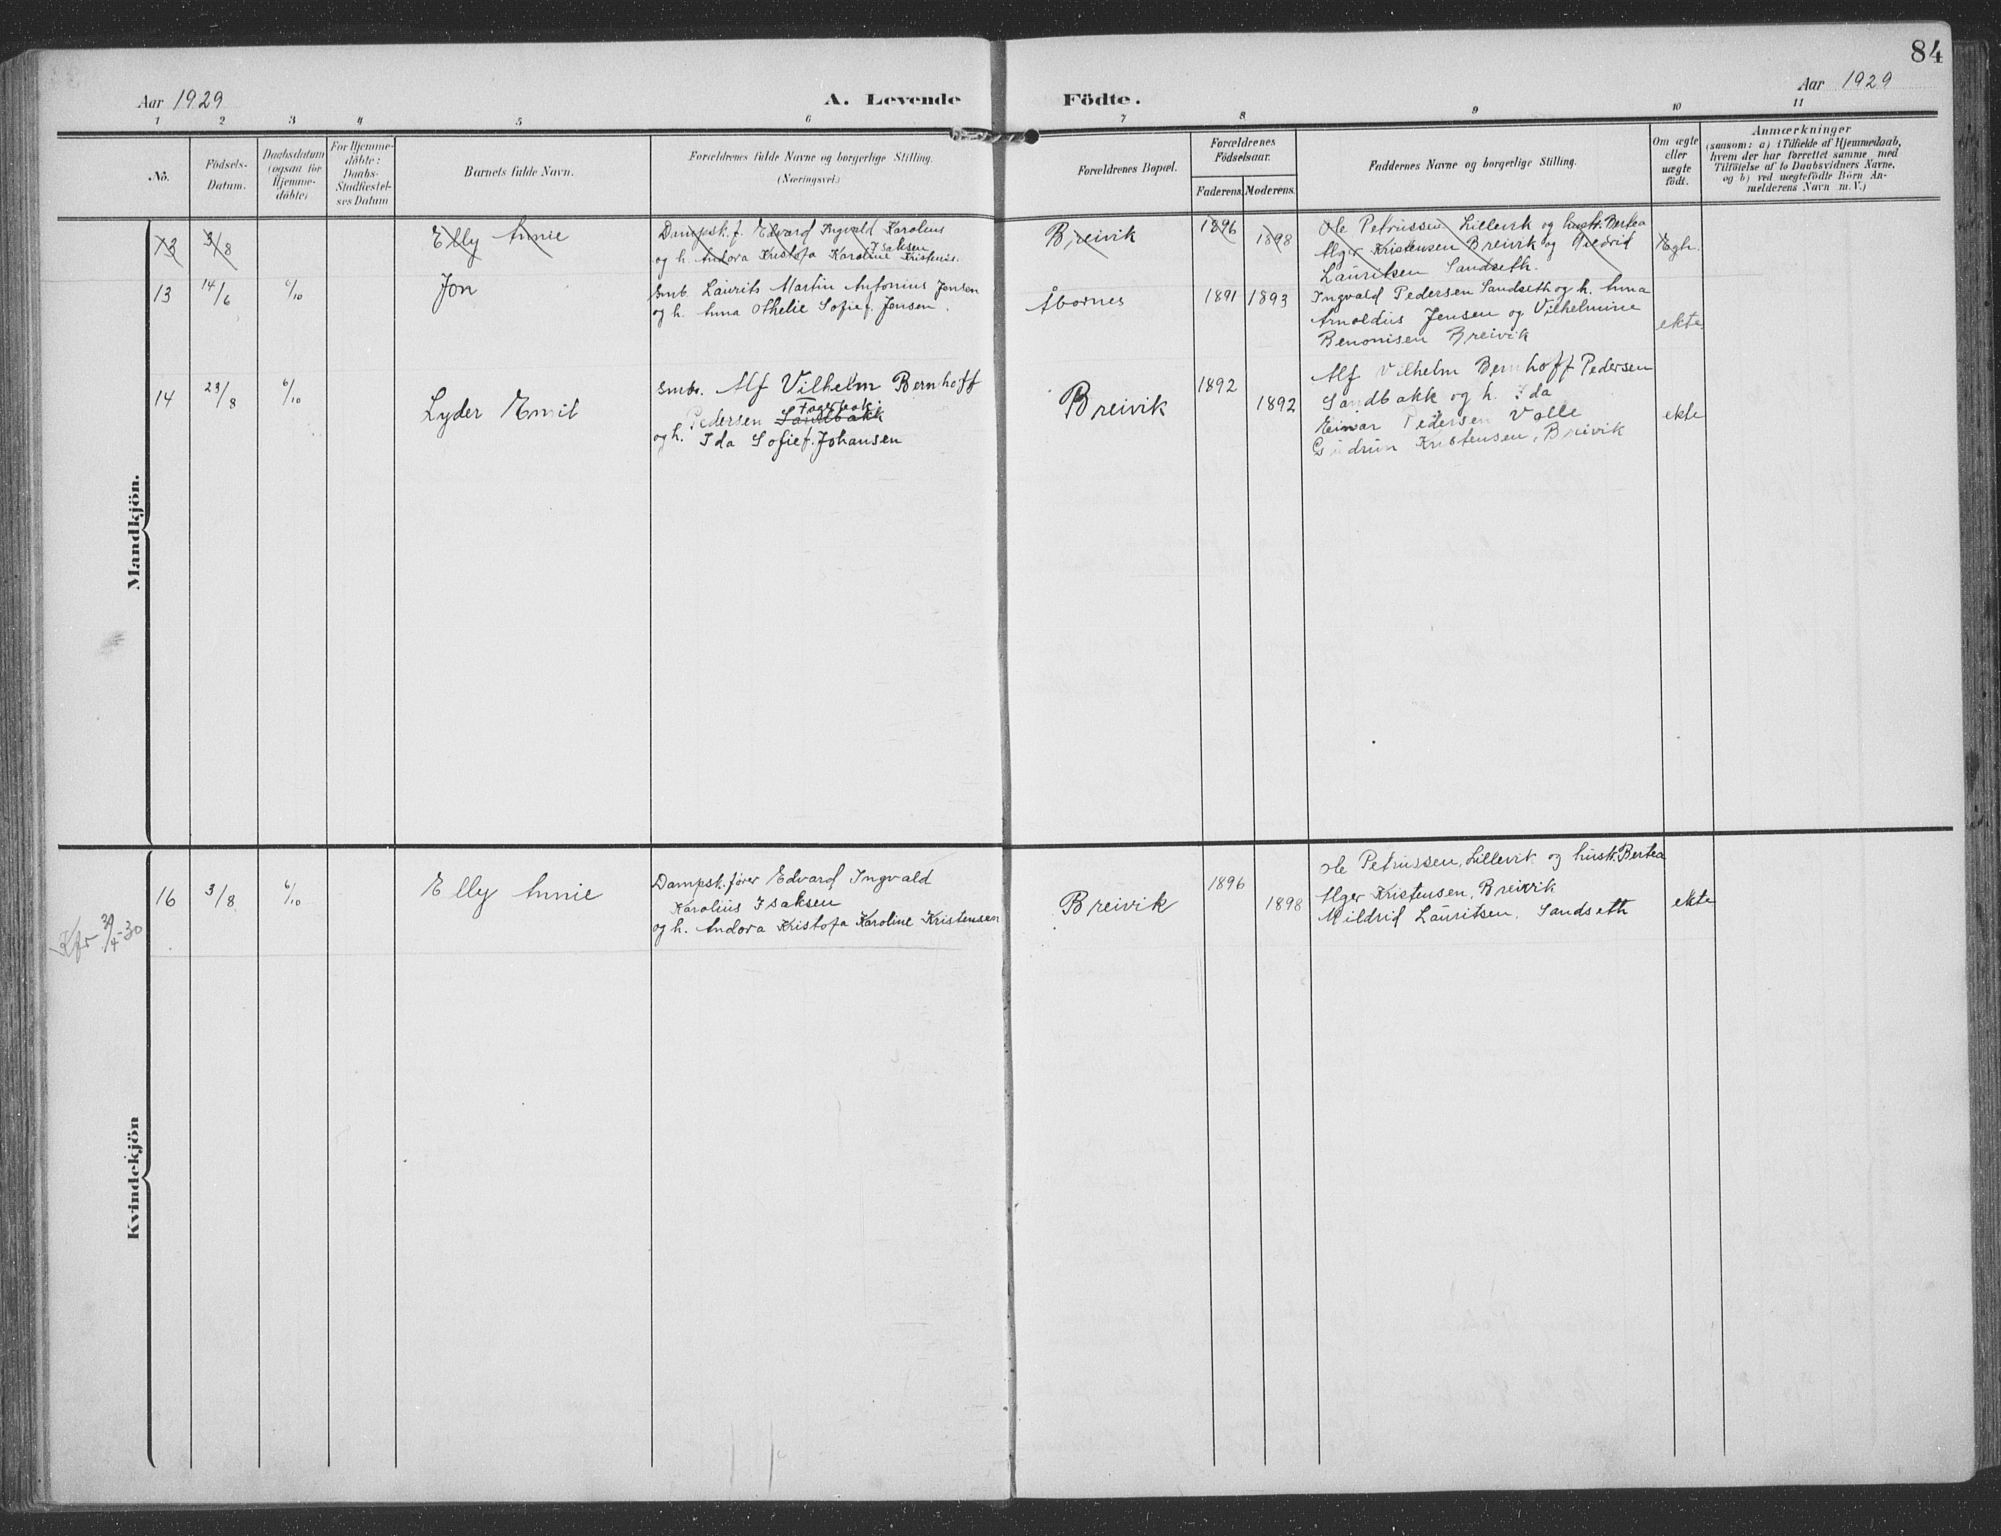 84
Aar 1929
A. Levende Födte.
Aar 1929
1 2 3 4 5 6 7 8 9 10 11
No.
Födsels-
Datum.
Daabsdatum
(ogsaa for
Hjemme-
döbte)
For Hjemme-
döbte:
Daabs-
Stadfæstel-
ses Datum
Barnets fulde Navn.
Forældrenes fulde Navne og borgerlige Stilling.
(Næringsvei.)
Forældrenes Bopæl.
Forældrenes
Födselsaar.
Faderens. Moderens.
Faddernes Navne og borgerlige Stilling.
Om ægte
eller
uægte
födt.
Anmærkninger
(saasom: a) i Tilfælde af Hjemmedaab,
hvem der har forrettet samme med
Tilföielse af to Daabsvidners Navne,
og b) ved uægtefödte Börn An-
melderens Navn m. V.)
Mandkjön.
13 3/8 Elly Annie
Dampsk. f. Edvard Ingvald Karolius
Isaksen
og h. Andora Kristofa Karoline Kristens.
Breivik 1896 1898
Ole Petrussen Lillevik og hustr. Bertea
Alger Kristensen Breivik og
Lauritsen Sandseth.
13 14/6 6/10 Jon
Smb. Laurits Martin Antonius Jensen
og h. Anna Othelie Sofie f. Jensen.
Åbornes 1891 1893
Ingvald Pedersen Sandseth og h. Anna
Arnoldus Jensen og Vilhelmine
Benonisen Breivik
ekte
14 23/8 6/10 Lyder Emil
Smbr. Alf Vilhelm Bernhoff
Pedersen Sandbakk
og h. Ida Sofie f. Johansen
Breivik 1892 1892
Alf Vilhelm Bernhoff Pedersen
Sandbakk og h. Ida
Einar Pedersen Valle
Gudrun Kristensen, Breivik
ekte
Kvindekjön
16 3/8 6/10 Elly Annie
Dampsk. fører Edvard Ingvald
Karolius Isaksen
og h. Andora Kristofa Karoline Kristensen
Breivik 1896 1898
Ole Petrussen, Lillevik og hustr. Bertea
Alger Kristensen, Breivik
Mildrid Lauritsen, Sandseth
ekte